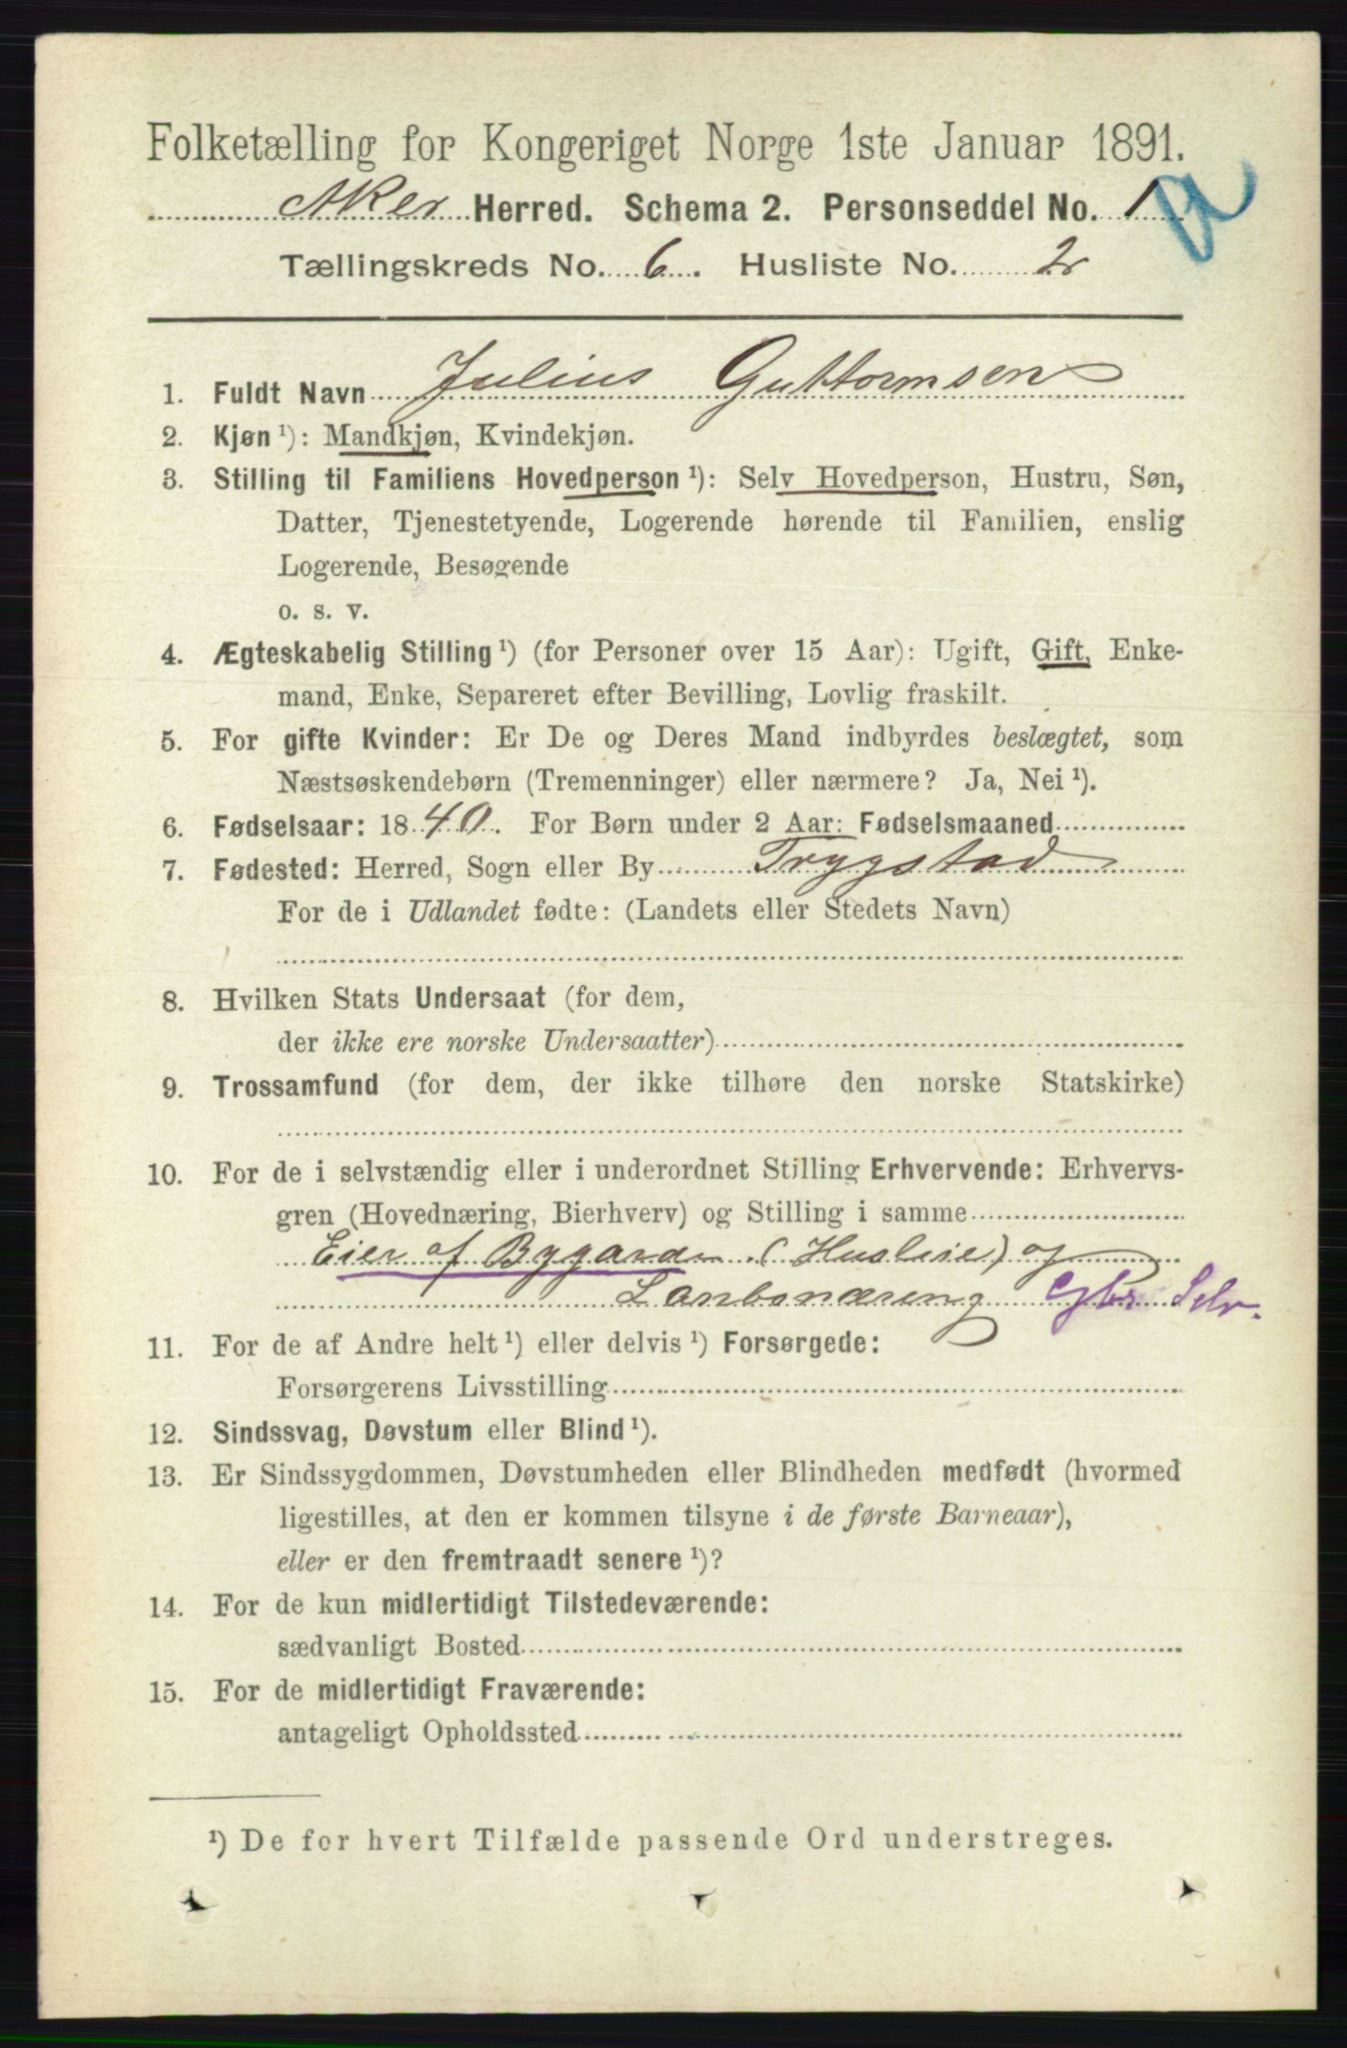 Folketælling for Kongeriget Norge 1ste Januar 1891.
Aker Herred. Schema 2. Personseddel No. 1
a
Tællingskreds No. 6. Husliste No. 2
1. Fuldt Navn Julius Guttormsen
2. Kjøn ¹): Mandkjøn, Kvindekjøn.
3. Stilling til Familiens Hovedperson ¹): Selv Hovedperson, Hustru, Søn,
Datter, Tjenestetyende, Logerende hørende til Familien, enslig
Logerende, Besøgende
o. s. v.
4. Ægteskabelig Stilling ¹) (for Personer over 15 Aar): Ugift, Gift, Enke-
mand, Enke, Separeret efter Bevilling, Lovlig fraskilt.
5. For gifte Kvinder: Er De og Deres Mand indbyrdes beslægtet, som
Næstsøskendebørn (Tremenninger) eller nærmere? Ja, Nei ¹).
6. Fødselsaar: 1840. For Børn under 2 Aar: Fødselsmaaned
7. Fødested: Herred, Sogn eller By Trygstad
For de i Udlandet fødte: (Landets eller Stedets Navn)
8. Hvilken Stats Undersaat (for dem,
der ikke ere norske Undersaatter)
9. Trossamfund (for dem, der ikke tilhøre den norske Statskirke)
10. For de i selvstændig eller i underordnet Stilling Erhvervende: Erhvervs-
gren (Hovednæring, Bierhverv) og Stilling i samme
Eier af Bygarde (Husleie) og
Lanbonæring Gbr. Selv.
11. For de af Andre helt ¹) eller delvis ¹) Forsørgede:
Forsørgerens Livsstilling
12. Sindssvag, Døvstum eller Blind ¹).
13. Er Sindssygdommen, Døvstumheden eller Blindheden medfødt (hvormed
ligestilles, at den er kommen tilsyne i de første Barneaar),
eller er den fremtraadt senere ¹)?
14. For de kun midlertidigt Tilstedeværende:
sædvanligt Bosted
15. For de midlertidigt Fraværende:
antageligt Opholdssted
¹) De for hvert Tilfælde passende Ord understreges.